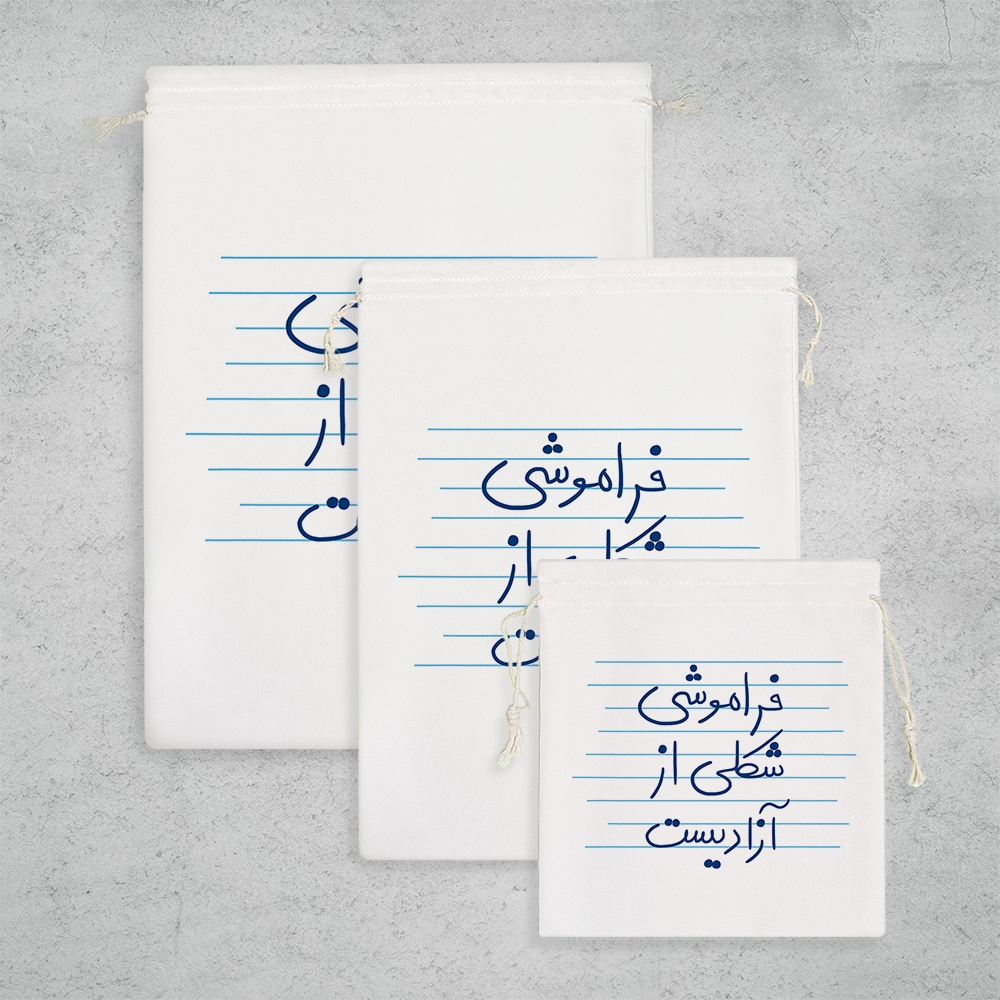 فراموشی
شکلی از
آزادیست
فراموشی
شکلی از
ت
ی
از
ت